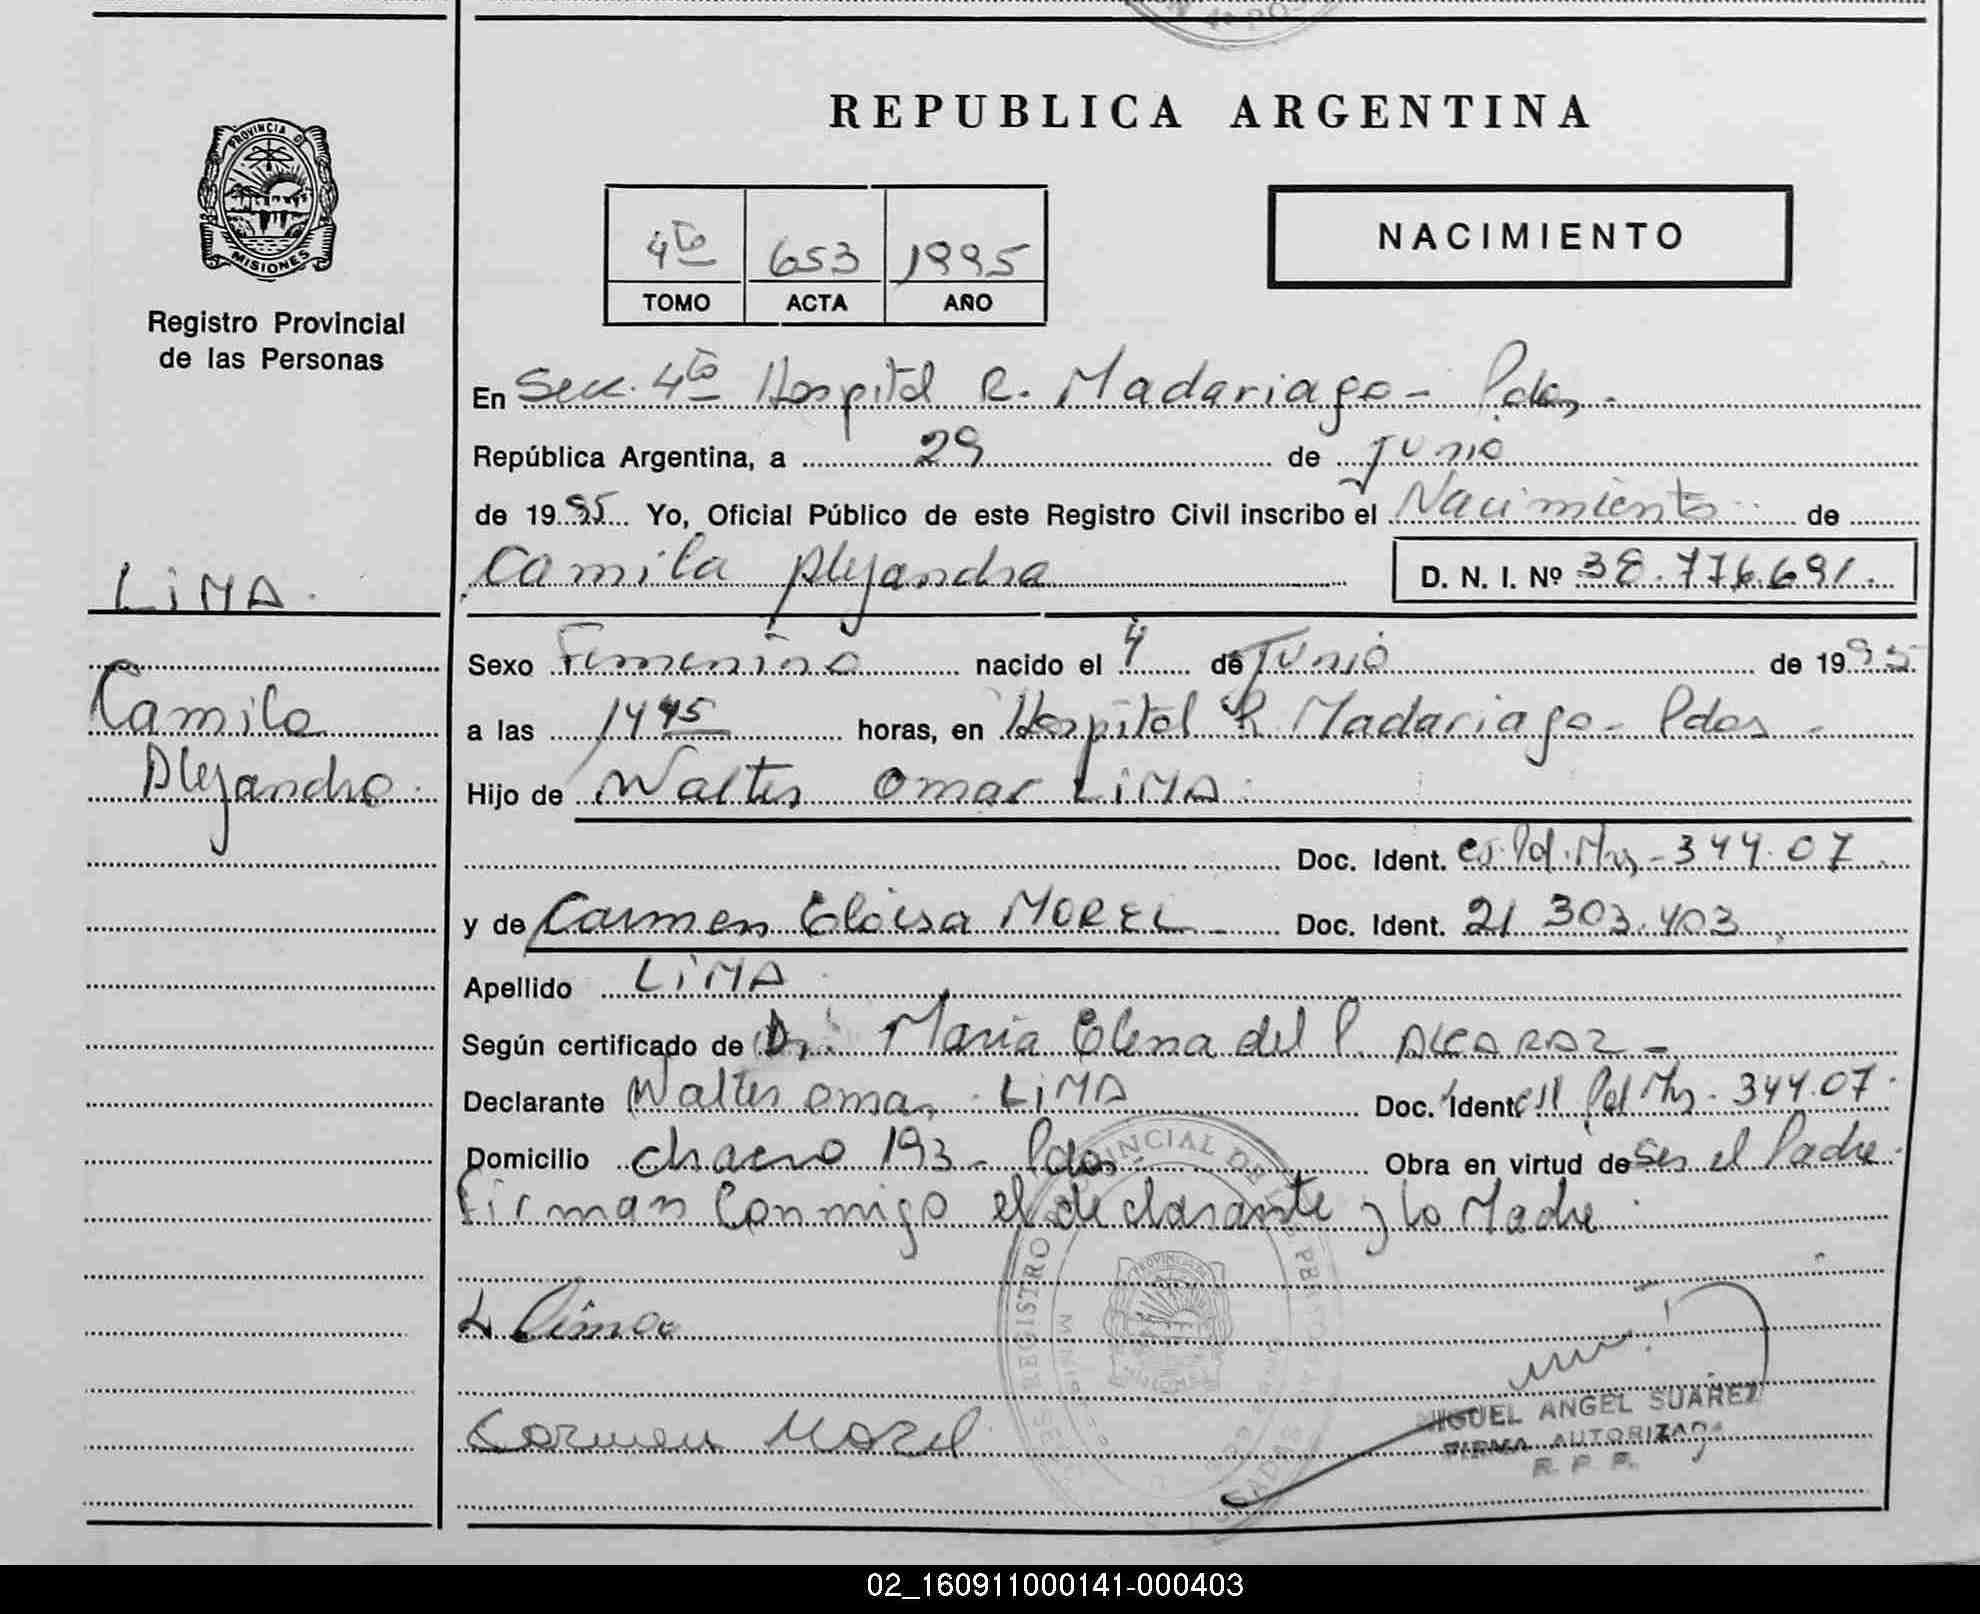 REPUBLICA ARGENTINA
PROVINCIA DE
MISIONES
Registro Provincial
de las Personas
4to 653 1995
TOMO ACTA AÑO
NACIMIENTO
En Secc. 4to Hospital R. Madariaga - Pdas.
República Argentina, a 29 de Junio
de 1995 Yo, Oficial Público de este Registro Civil inscribo el Nacimiento de
Camila Alejandra D. N. I. Nº 38.776.691.
LIMA.
Camila
Alejandra.
Sexo Femenino nacido el 4 de Junio de 1995
a las 1445 horas, en Hospital R. Madariaga - Pdas -
Hijo de Walter Omar LIMA.
Doc. Ident. 344.07
y de Carmen Eloisa MOREL Doc. Ident. 21 303.403
Apellido LIMA
Según certificado de Dr. Maria Elena del P. ALCARAZ -
Declarante Walter Omar LIMA Doc. Ident. 344.07
Domicilio Chaco 193 - Pdas. Obra en virtud de Ser el Padre.
Firman Conmigo el declarante y la Madre.
Lima
Carmen Morel
MIGUEL ANGEL SUAREZ
FIRMA AUTORIZADA
R. P. P.
02_160911000141-000403